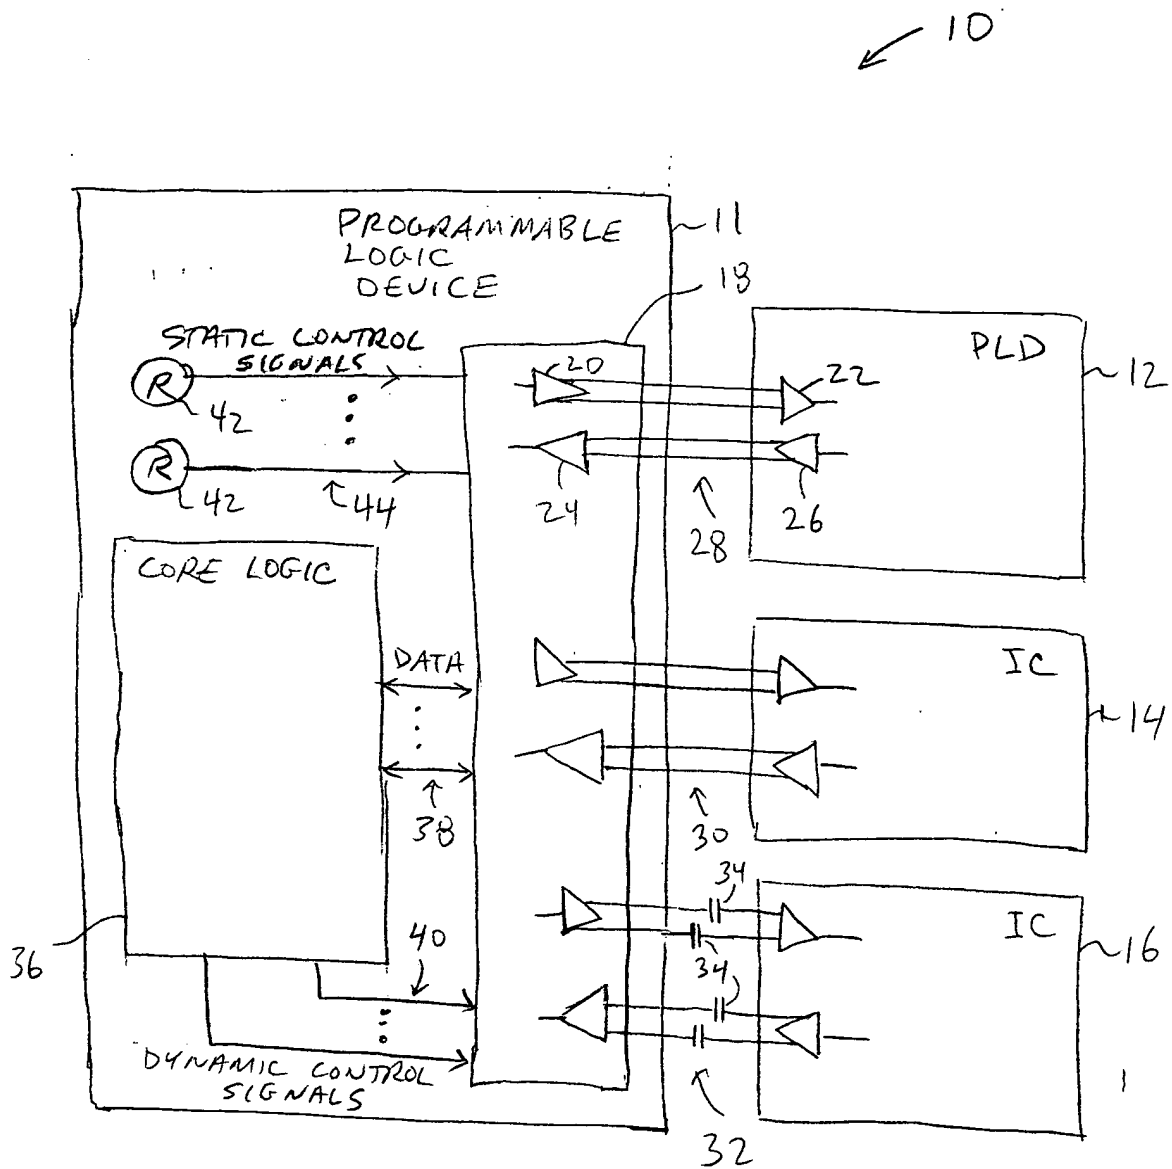 10
PROGRAMMABLE
LOGIC
DEVICE
11
18
STATIC CONTROL
SIGNALS
R
42
R
42
44
20
22
PLD
12
24
26
28
CORE LOGIC
DATA
38
IC
14
30
36
40
34
34
IC
16
DYNAMIC CONTROL
SIGNALS
32